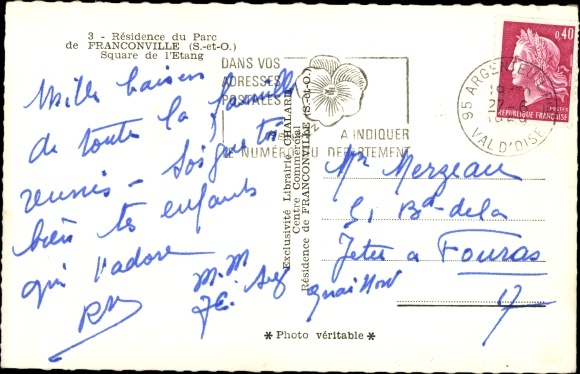 3 - Résidence du Parc
de FRANCONVILLE (S.-et-O.)
Square de l'Etang
Mille baisers
de toute la famille
reunis - Soigne toi
bien tes enfants
qui t'adore
M.M
DANS VOS
ADRESSES
POSTALES
A INDIQUER
LE NUMERO DU DEPARTEMENT
95 ARGENTEUIL
27-6
VAL D'OISE
0,40
POSTES
REPUBLIQUE FRANÇAISE
Exclusivité Librairie CHALARD
Centre Commercial
Résidence de FRANCONVILLE (S.-et-O.)
Mr Merzeau
51 Bd de la
Jetée à FOURAS
17
* Photo véritable *